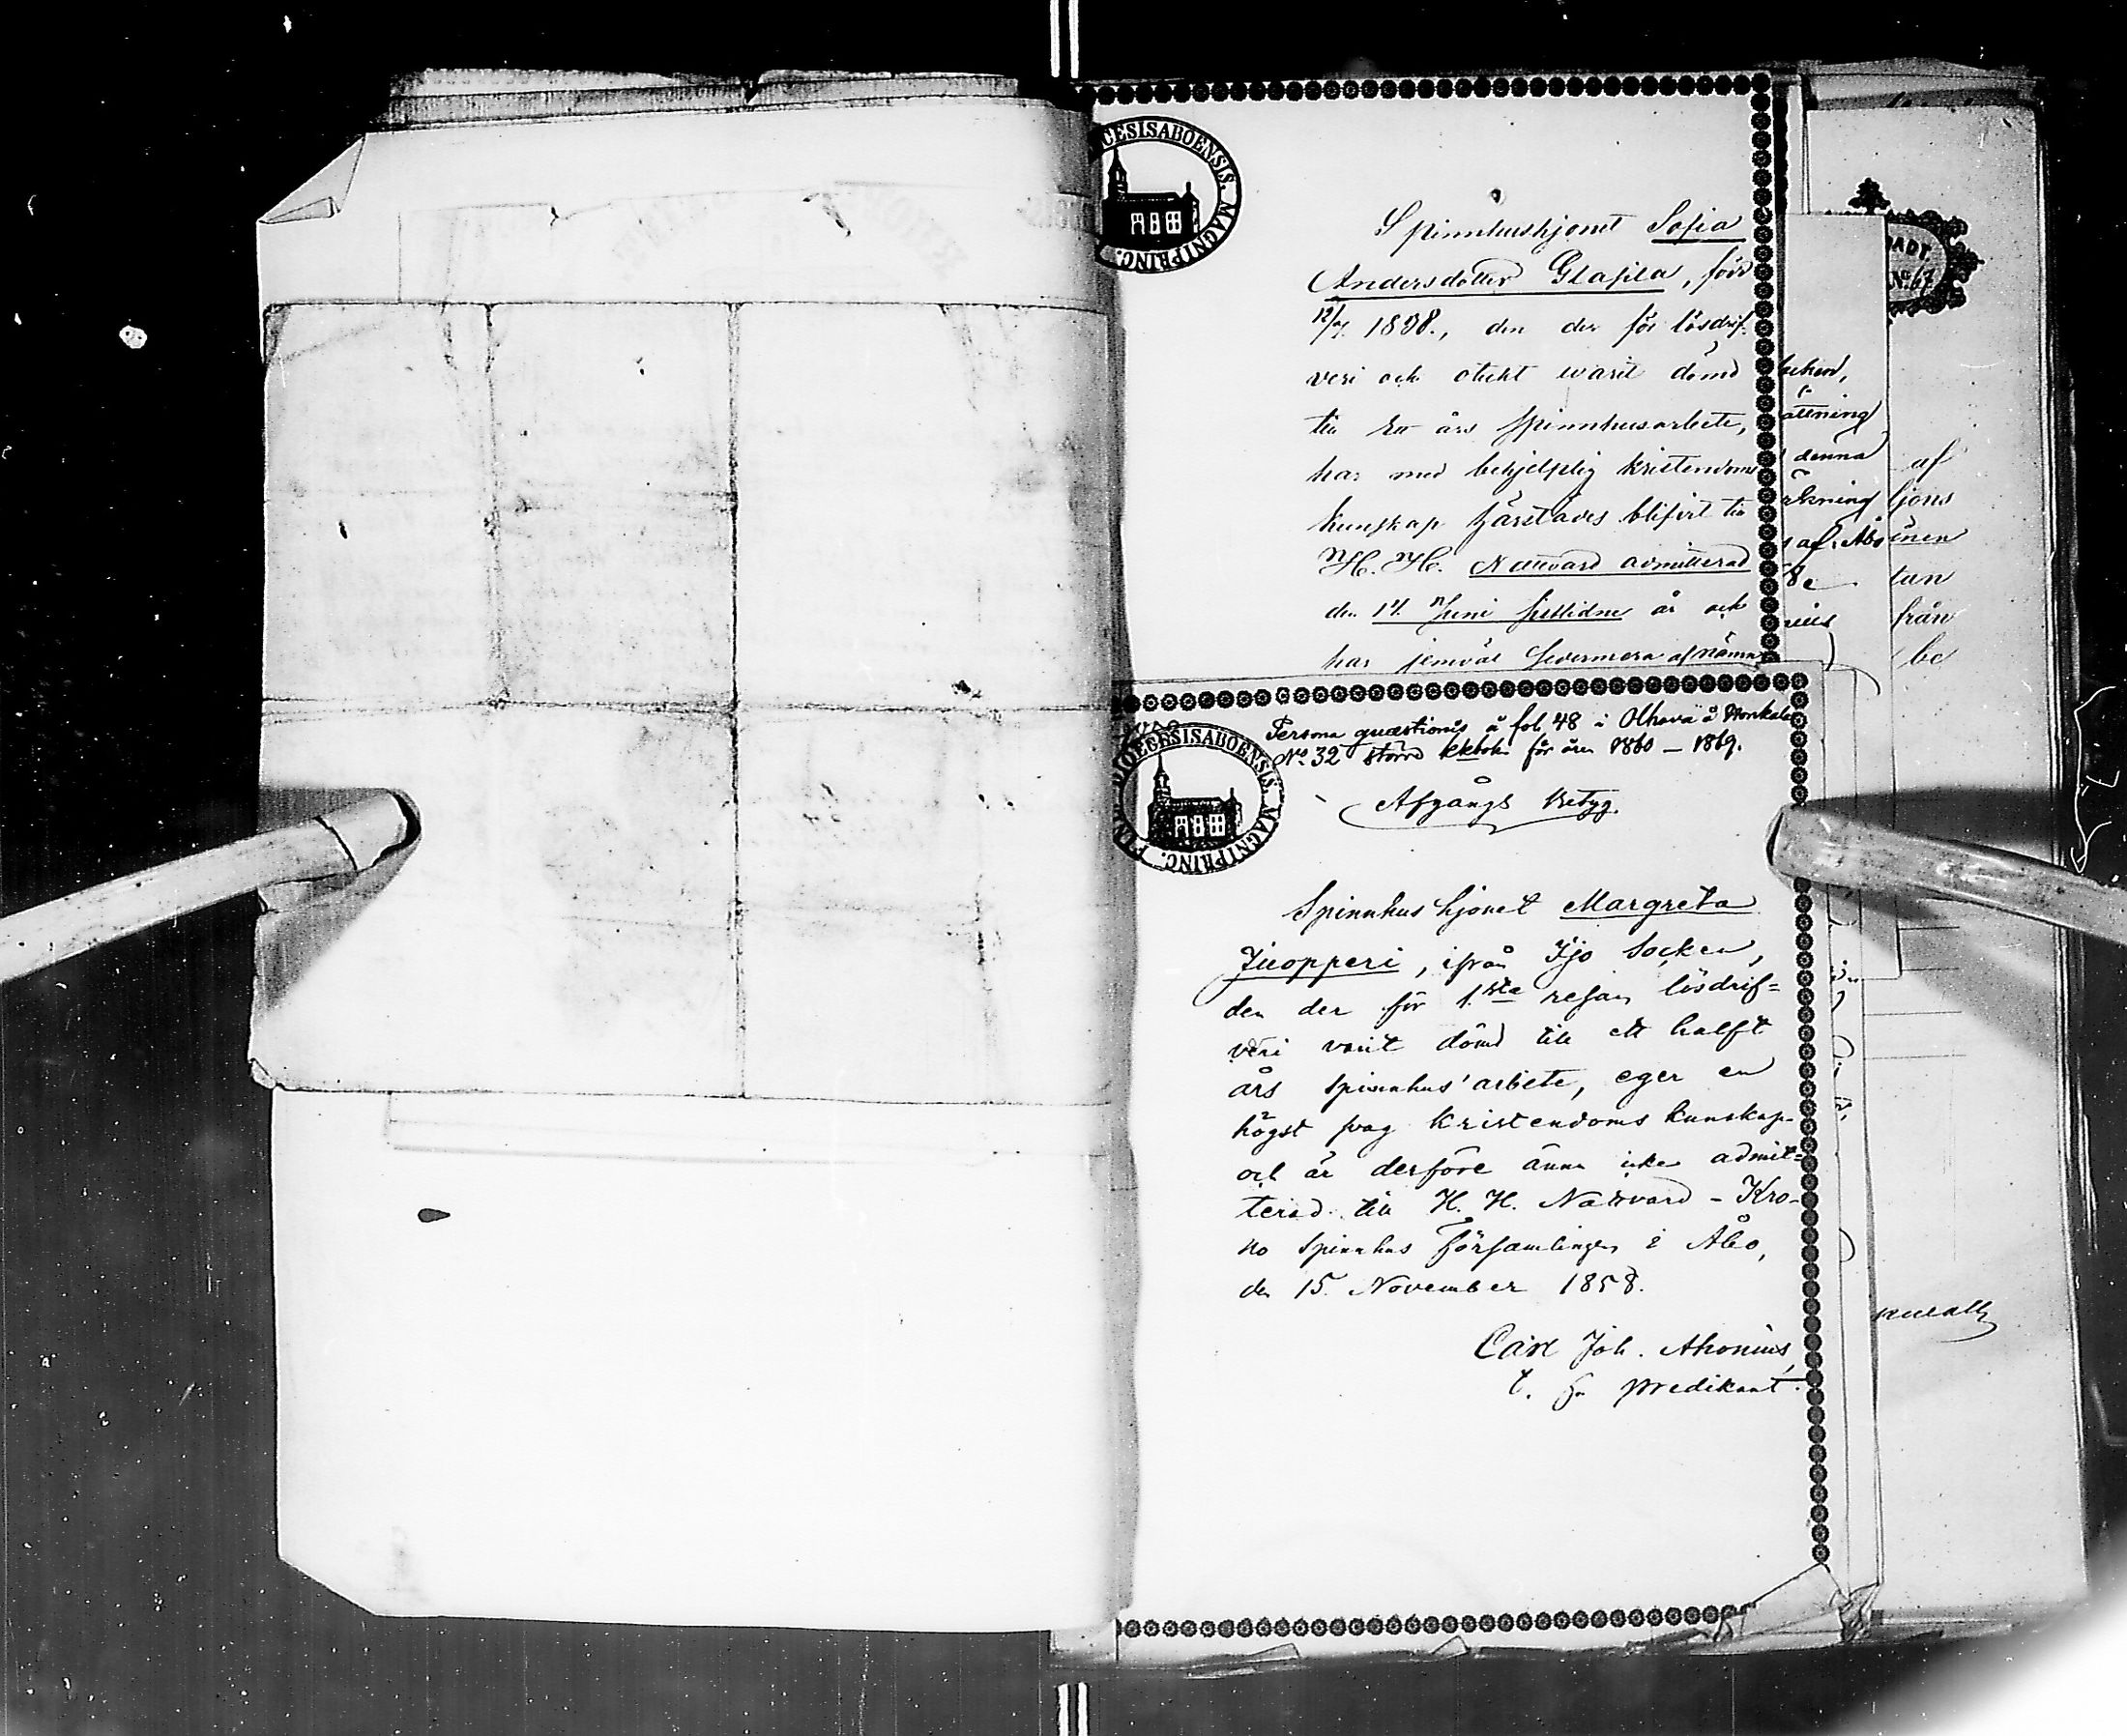 DIOECESIS ABOENSIS. MAGNI PRINC.
Spinnhushjonet Sofia
Andersdotter Glasila, född
12/7 1838., den der för lösdrif-
veri och otukt warit dömd
till ett års spinnhusarbete,
har med behjelplig kristendoms
kunskap blifvit till
H. H. Nattvard admitterad
den 17 Juni sistlidne år och
har jemväl sedermera af nämn
ADT.
No. 62
socken,
ättning
denna
rkning
af Åbo
af
ljons
inen
tan
från
be
DIOECESIS ABOENSIS. MAGNI PRINC. FINL.
Persona quæstionis å fol. 48 i Olhava å Honkala
No 32 större kkboken för åren 1860 – 1869.
Afgångs Betyg
Spinnhushjonet Margreta
Juopperi, ifrån Ijo Socken,
den der för 1.sta resan lösdrif=
veri varit dömd till ett halft
års spinnhus'arbete, eger en
högst svag Kristendoms kunskap
och är derföre ännu icke admit=
terad till H. H. Nattvard – Kro-
no Spinnhus Församlingen i Åbo,
den 15. November 1858.
Carl Joh. Ahonius,
t. f. predikant.